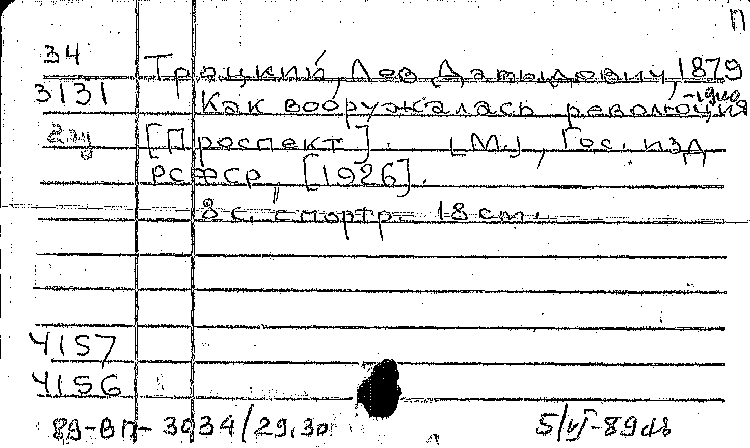 П
34
3131
2 эу
Троцкий, Лев Давыдович, 1879
-1940
Как вооружалась революция
[Проспект]. [М.], Гос. изд
РСФСР, [1926].
8 с. с портр. 18 см.
4157
4156
89-ВП-3034/29,30
5/VI-89